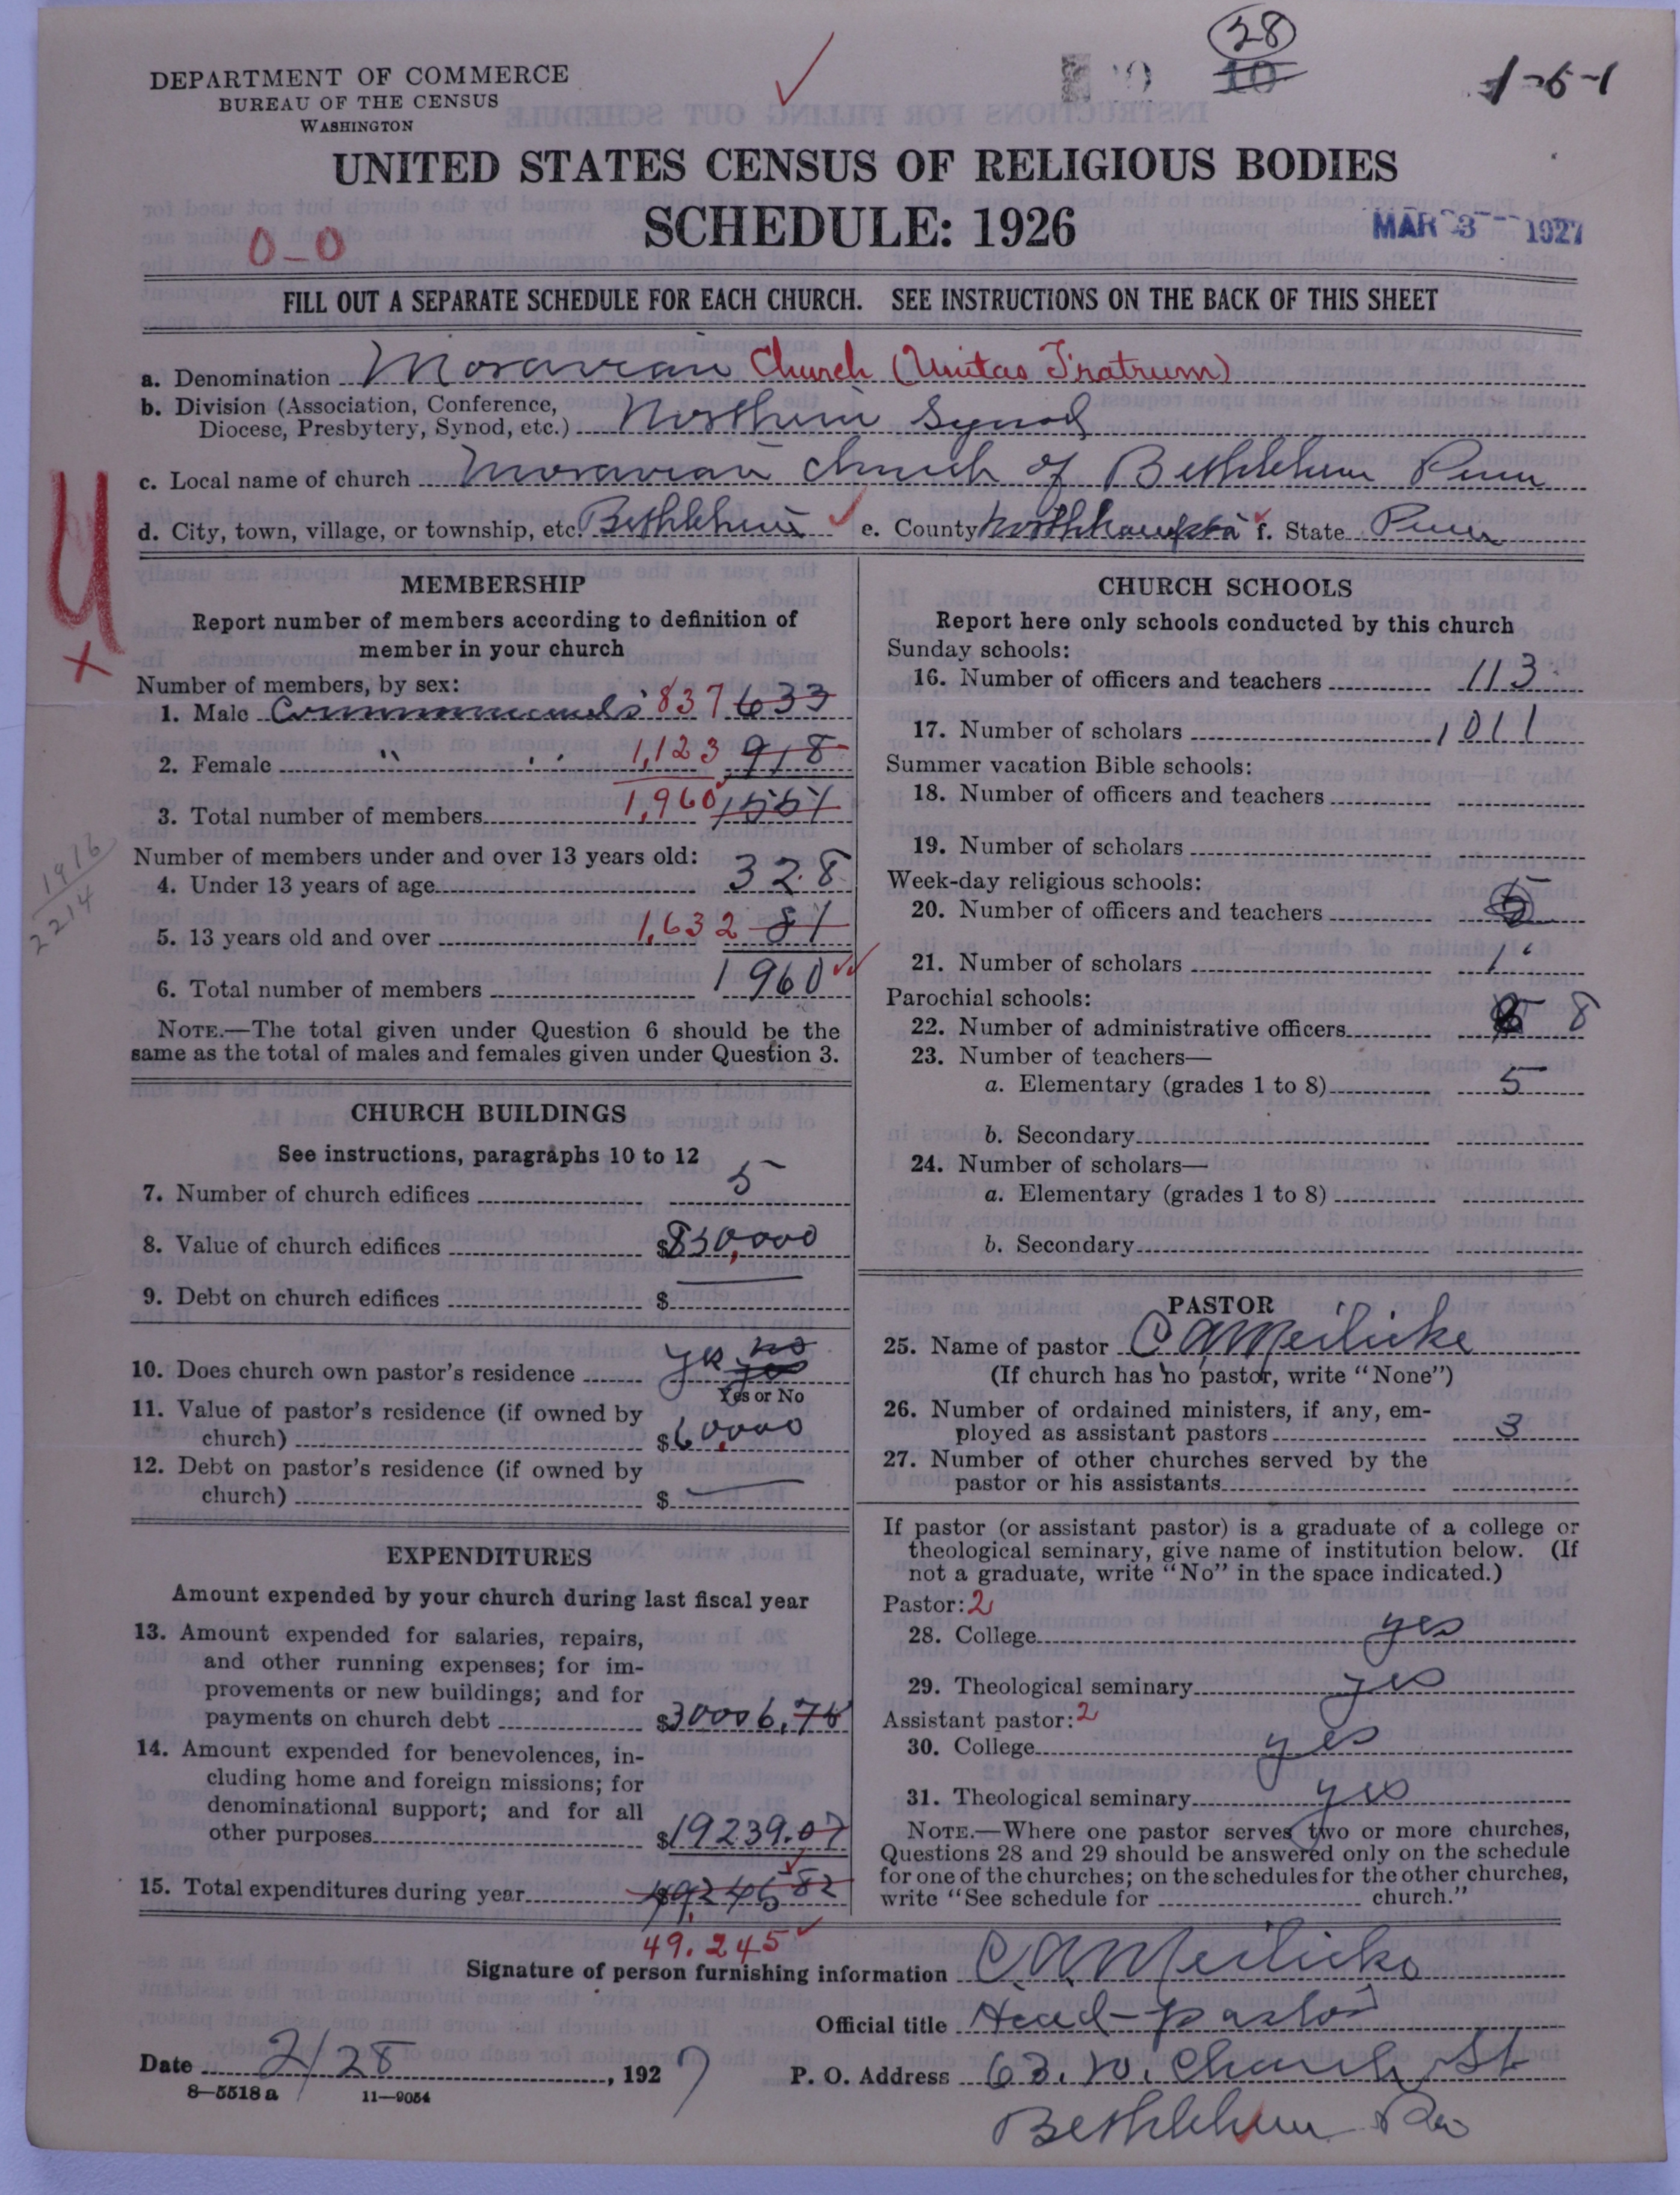 28
10
1-6-1
DEPARTMENT OF COMMERCE
BUREAU OF THE CENSUS
WASHINGTON
UNITED STATES CENSUS OF RELIGIOUS BODIES
SCHEDULE: 1926
MAR 3 1927
0-0
FILL OUT A SEPARATE SCHEDULE FOR EACH CHURCH. SEE INSTRUCTIONS ON THE BACK OF THIS SHEET
a. Denomination Moravian Church (Unitas Fratrum)
b. Division (Association, Conference,
Diocese, Presbytery, Synod, etc.) Northern Synod
c. Local name of church Moravian Church of Bethlehem Penn
d. City, town, village, or township, etc. Bethlehem e. County Northhampton f. State Penn
MEMBERSHIP
Report number of members according to definition of
member in your church
Number of members, by sex:
1. Male Communicants 837 633
2. Female " 1,123 918
3. Total number of members 1,960 1551
1916
2214
Number of members under and over 13 years old:
4. Under 13 years of age 328
5. 13 years old and over 1,632 81
6. Total number of members 1960
NOTE.—The total given under Question 6 should be the
same as the total of males and females given under Question 3.
CHURCH BUILDINGS
See instructions, paragraphs 10 to 12
7. Number of church edifices 5
8. Value of church edifices $830,000
9. Debt on church edifices $
10. Does church own pastor's residence yes no
Yes or No
11. Value of pastor's residence (if owned by
church) $60,000
12. Debt on pastor's residence (if owned by
church) $
EXPENDITURES
Amount expended by your church during last fiscal year
13. Amount expended for salaries, repairs,
and other running expenses; for im-
provements or new buildings; and for
payments on church debt $30006.75
14. Amount expended for benevolences, in-
cluding home and foreign missions; for
denominational support; and for all
other purposes $19239.07
15. Total expenditures during year 49245 82
49,245
CHURCH SCHOOLS
Report here only schools conducted by this church
Sunday schools:
16. Number of officers and teachers 113
17. Number of scholars 1011
Summer vacation Bible schools:
18. Number of officers and teachers
19. Number of scholars
Week-day religious schools:
20. Number of officers and teachers
21. Number of scholars
Parochial schools:
22. Number of administrative officers 8
23. Number of teachers—
a. Elementary (grades 1 to 8) 5
b. Secondary
24. Number of scholars—
a. Elementary (grades 1 to 8)
b. Secondary
PASTOR
25. Name of pastor C A Meilicke
(If church has no pastor, write "None")
26. Number of ordained ministers, if any, em-
ployed as assistant pastors 3
27. Number of other churches served by the
pastor or his assistants
If pastor (or assistant pastor) is a graduate of a college or
theological seminary, give name of institution below. (If
not a graduate, write "No" in the space indicated.)
Pastor: 2
28. College yes
29. Theological seminary yes
Assistant pastor: 2
30. College yes
31. Theological seminary yes
NOTE.—Where one pastor serves two or more churches,
Questions 28 and 29 should be answered only on the schedule
for one of the churches; on the schedules for the other churches,
write "See schedule for church."
Signature of person furnishing information C. A. Meilicke
Official title Head-pastor
Date 2/28, 1927
P. O. Address 63. W. Church St
Bethlehem Pa
8—5518 a 11—9054